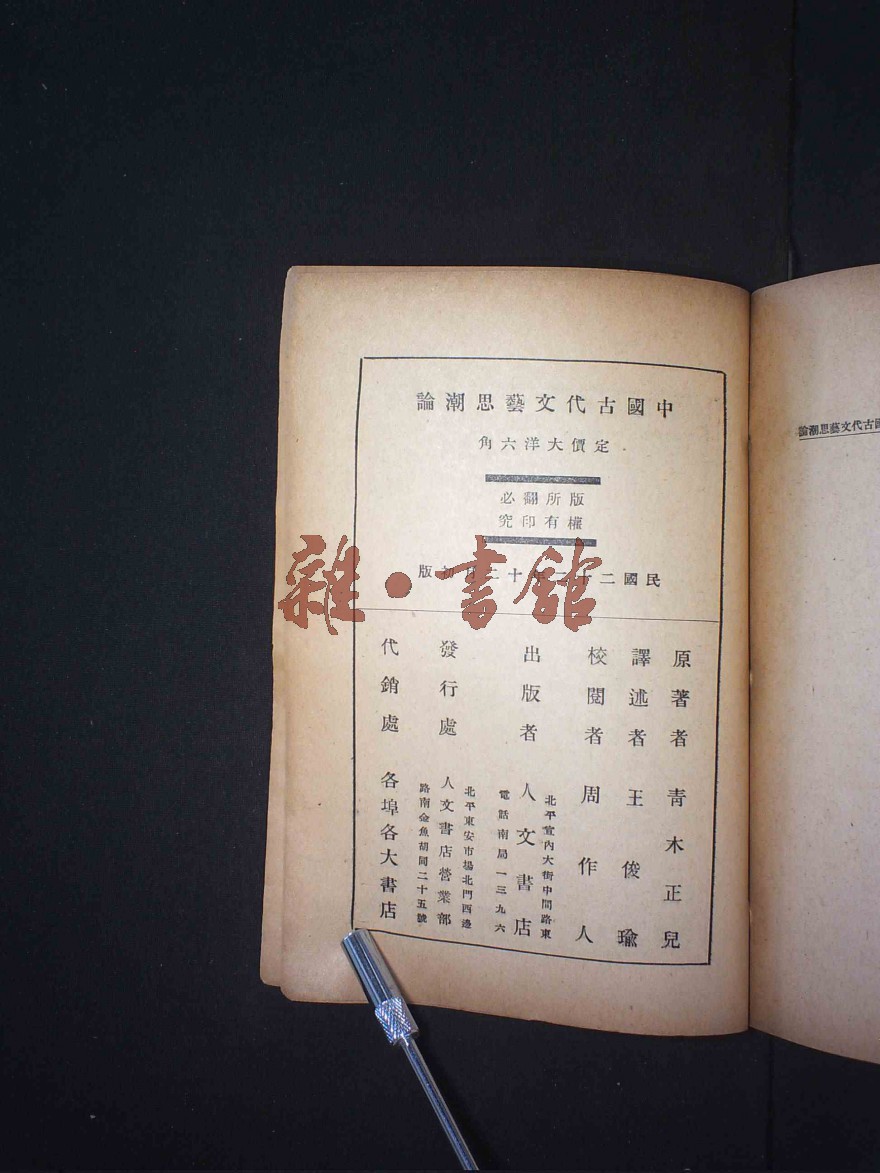 中國古代文藝思潮論
定價大洋六角
版權所有翻印必究
民國二十二年十二月初版
原著者 青木正兒
譯述者 王俊瑜
校閱者 周作人
出版者 人文書店
北平宣內大街中間路東
電話南局一三九六
發行處 人文書店營業部
北平東安市場北門西邊
路南金魚胡同二十五號
代銷處 各埠各大書店
雜·書館
國古代文藝思潮論